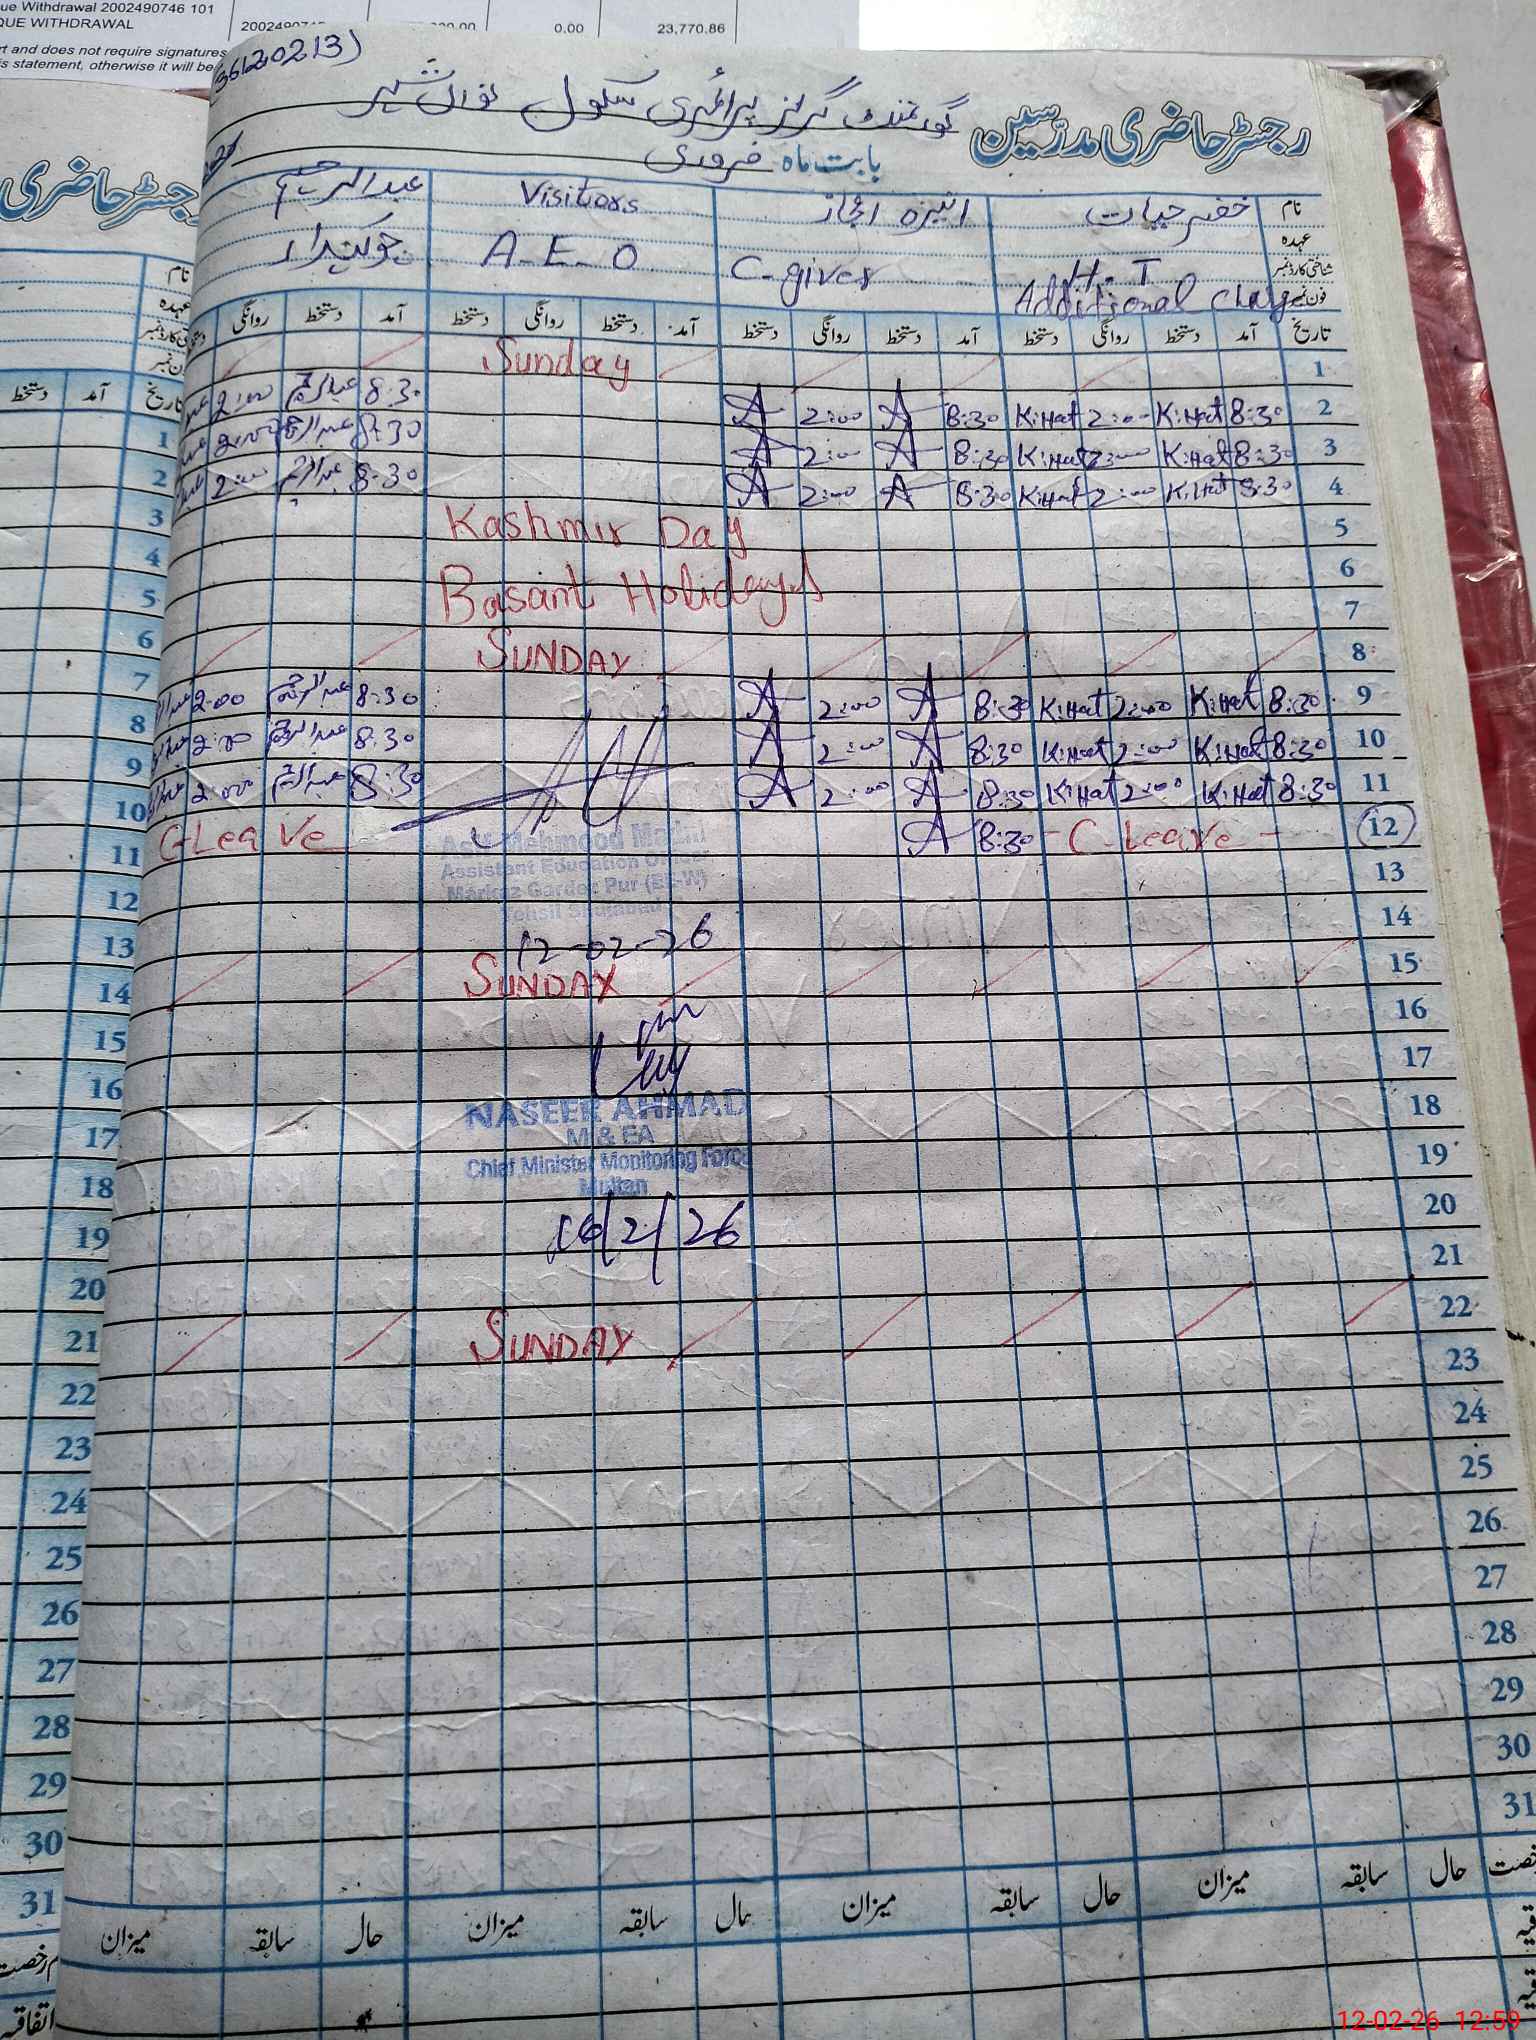 ue Withdrawal 2002490746 101
QUE WITHDRAWAL
0.00 23,770.86
rt and does not require signatures
is statement, otherwise it will be
رجسٹر حاضری مدرسین گورنمنٹ گرلز پرائمری سکول نواں شہر
بابت ماہ فروری
نام خضر حیات Visitiors عبدالرحیم
عہدہ H.T C-giver A-E-O چوکیدار
شناختی کارڈ نمبر
فون نمبر Additional Charge
تاریخ آمد دستخط روانگی دستخط آمد دستخط روانگی دستخط آمد دستخط روانگی دستخط آمد دستخط روانگی
1 Sunday
2 8:30 K:Hat 2:00 K:Hat 8:30 A 2:00 A 8:30 عبدالرحیم 2:00
3 8:30 K:Hat 2:00 K:Hat 8:30 A 2:00 A 8:30 عبدالرحیم 2:00
4 8:30 K:Hat 2:00 K:Hat 8:30 A 2:00 A 8:30 عبدالرحیم 2:00
5 Kashmir Day
6 Basant Holidays
7
8 SUNDAY
9 8:30 K:Hat 2:00 K:Hat 8:30 A 2:00 A 8:30 عبدالرحیم 2:00
10 8:30 K:Hat 2:00 K:Hat 8:30 A 2:00 A 8:30 عبدالرحیم 2:00
11 8:30 K:Hat 2:00 K:Hat 8:30 A 2:00 A 8:30 عبدالرحیم 2:00
12 - C-Leave - 8:30 A C-Leave
Mehmood
Assistant Education Officer
Markaz Gardez Pur (EE-W)
Tehsil Shujabad
13
14
12-02-26
15 SUNDAY
16
17
NASEER AHMAD
M & EA
Chief Minister Monitoring Force
Multan
18
19
20
16/2/26
21
22 SUNDAY
23
24
25
26
27
28
29
30
31
حال سابقہ میزان حال سابقہ میزان حال سابقہ میزان حال سابقہ میزان
رجسٹر حاضری
نام
عہدہ
تاریخ آمد دستخط
1
2
3
4
5
6
7
8
9
10
11
12
13
14
15
16
17
18
19
20
21
22
23
24
25
26
27
28
29
30
31
اتفاقیہ
12-02-26 12:59